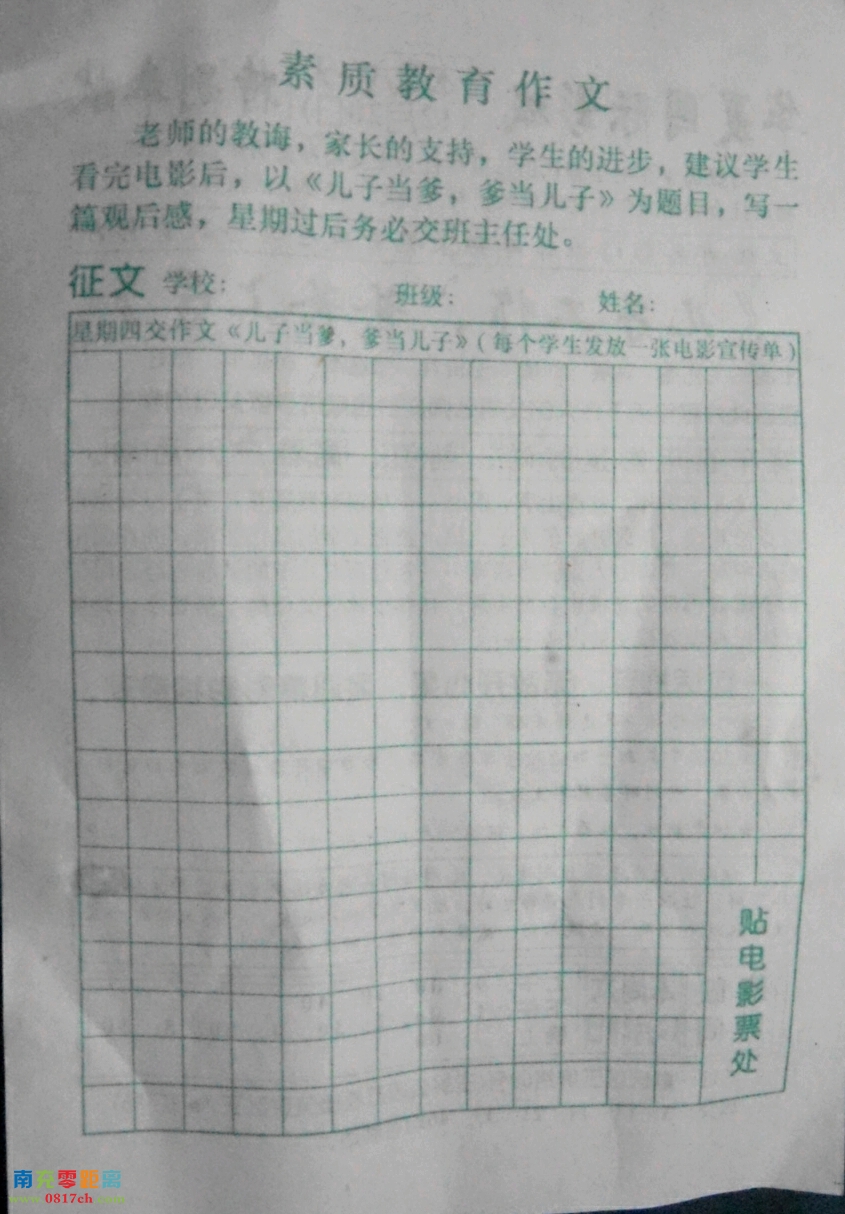 素质教育作文
老师的教诲，家长的支持，学生的进步，建议学生
看完电影后，以《儿子当爹，爹当儿子》为题目，写一
篇观后感，星期过后务必交班主任处。
征文 学校： 班级： 姓名：
星期四交作文《儿子当爹，爹当儿子》（每个学生发放一张电影宣传单）
贴电影票处
南充零距离
www.0817ch.com